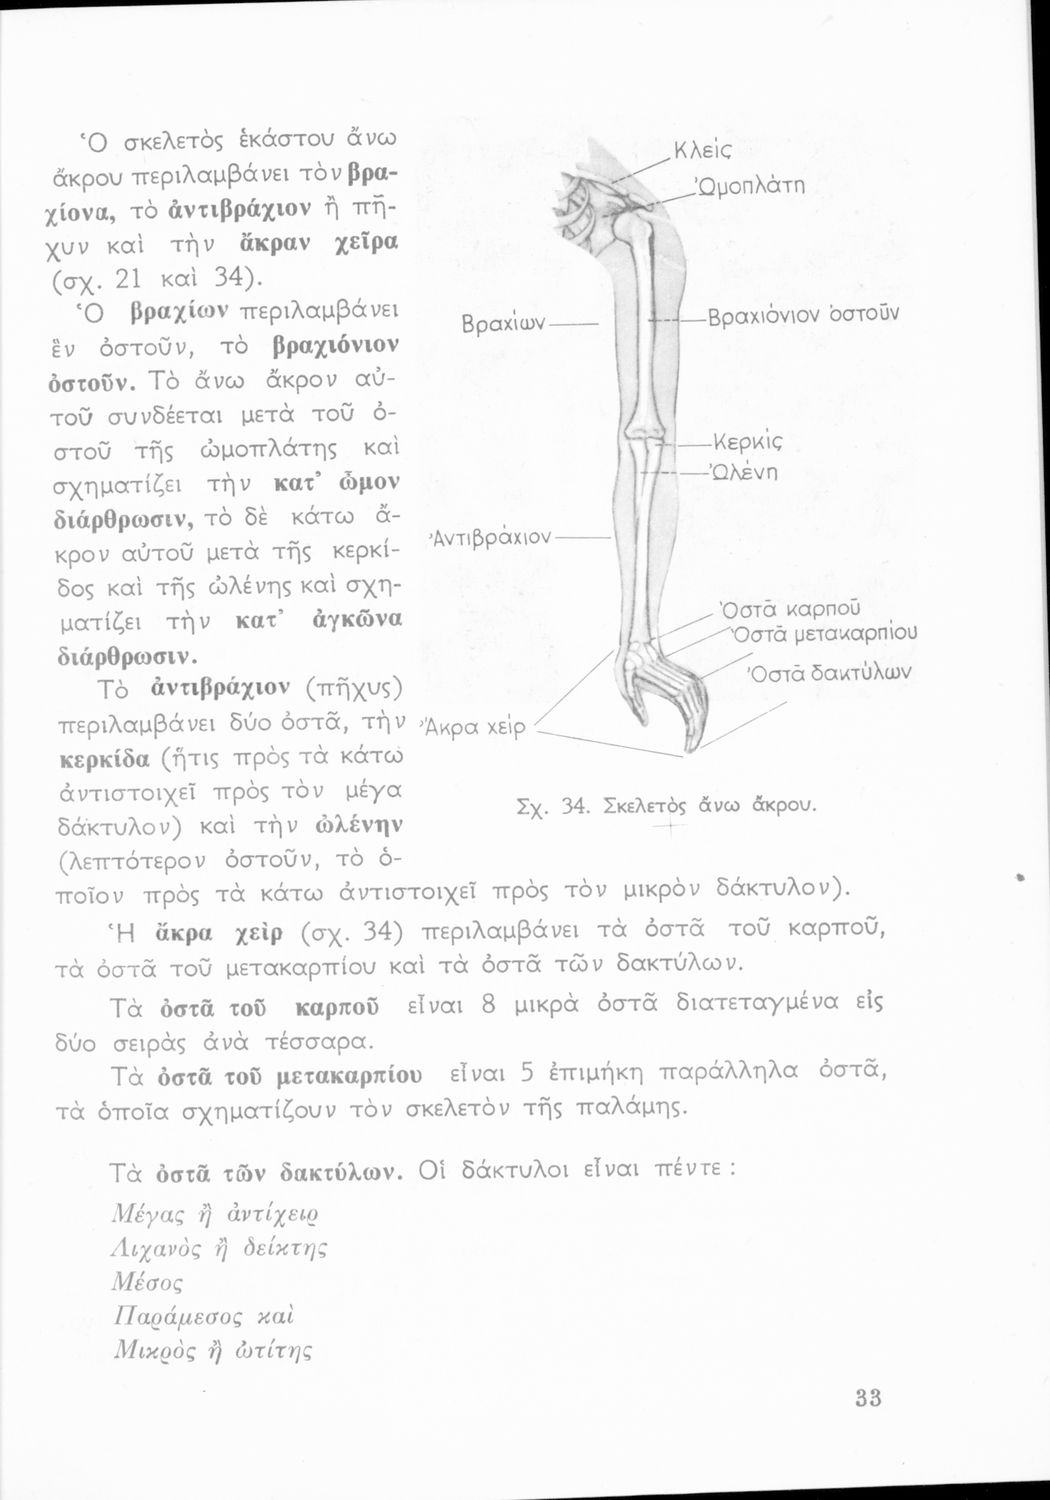 Ὁ σκελετὸς ἑκάστου ἄνω
ἄκρου περιλαμβάνει τὸν βρα-
χίονα, τὸ ἀντιβράχιον ἢ πῆ-
χυν καὶ τὴν ἄκραν χεῖρα
(σχ. 21 καὶ 34).
Ὁ βραχίων περιλαμβάνει
ἓν ὀστοῦν, τὸ βραχιόνιον
ὀστοῦν. Τὸ ἄνω ἄκρον αὐ-
τοῦ συνδέεται μετὰ τοῦ ὀ-
στοῦ τῆς ὠμοπλάτης καὶ
σχηματίζει τὴν κατ’ ὦμον
διάρθρωσιν, τὸ δὲ κάτω ἄ-
κρον αὐτοῦ μετὰ τῆς κερκί-
δος καὶ τῆς ὠλένης καὶ σχη-
ματίζει τὴν κατ’ ἀγκῶνα
διάρθρωσιν.
Τὸ ἀντιβράχιον (πῆχυς)
περιλαμβάνει δύο ὀστᾶ, τὴν
κερκίδα (ἥτις πρὸς τὰ κάτω
ἀντιστοιχεῖ πρὸς τὸν μέγα
δάκτυλον) καὶ τὴν ὠλένην
(λεπτότερον ὀστοῦν, τὸ ὁ-
ποῖον πρὸς τὰ κάτω ἀντιστοιχεῖ πρὸς τὸν μικρὸν δάκτυλον).
Κλείς
Ὠμοπλάτη
Βραχίων
Βραχιόνιον ὀστοῦν
Κερκίς
Ὠλένη
Ἀντιβράχιον
Ὀστᾶ καρποῦ
Ὀστᾶ μετακαρπίου
Ὀστᾶ δακτύλων
Ἄκρα χείρ
Σχ. 34. Σκελετὸς ἄνω ἄκρου.
Ἡ ἄκρα χεὶρ (σχ. 34) περιλαμβάνει τὰ ὀστᾶ τοῦ καρποῦ,
τὰ ὀστᾶ τοῦ μετακαρπίου καὶ τὰ ὀστᾶ τῶν δακτύλων.
Τὰ ὀστᾶ τοῦ καρποῦ εἶναι 8 μικρὰ ὀστᾶ διατεταγμένα εἰς
δύο σειρὰς ἀνὰ τέσσαρα.
Τὰ ὀστᾶ τοῦ μετακαρπίου εἶναι 5 ἐπιμήκη παράλληλα ὀστᾶ,
τὰ ὁποῖα σχηματίζουν τὸν σκελετὸν τῆς παλάμης.
Τὰ ὀστᾶ τῶν δακτύλων. Οἱ δάκτυλοι εἶναι πέντε :
Μέγας ἢ ἀντίχειρ
Λιχανὸς ἢ δείκτης
Μέσος
Παράμεσος καὶ
Μικρὸς ἢ ὠτίτης
33